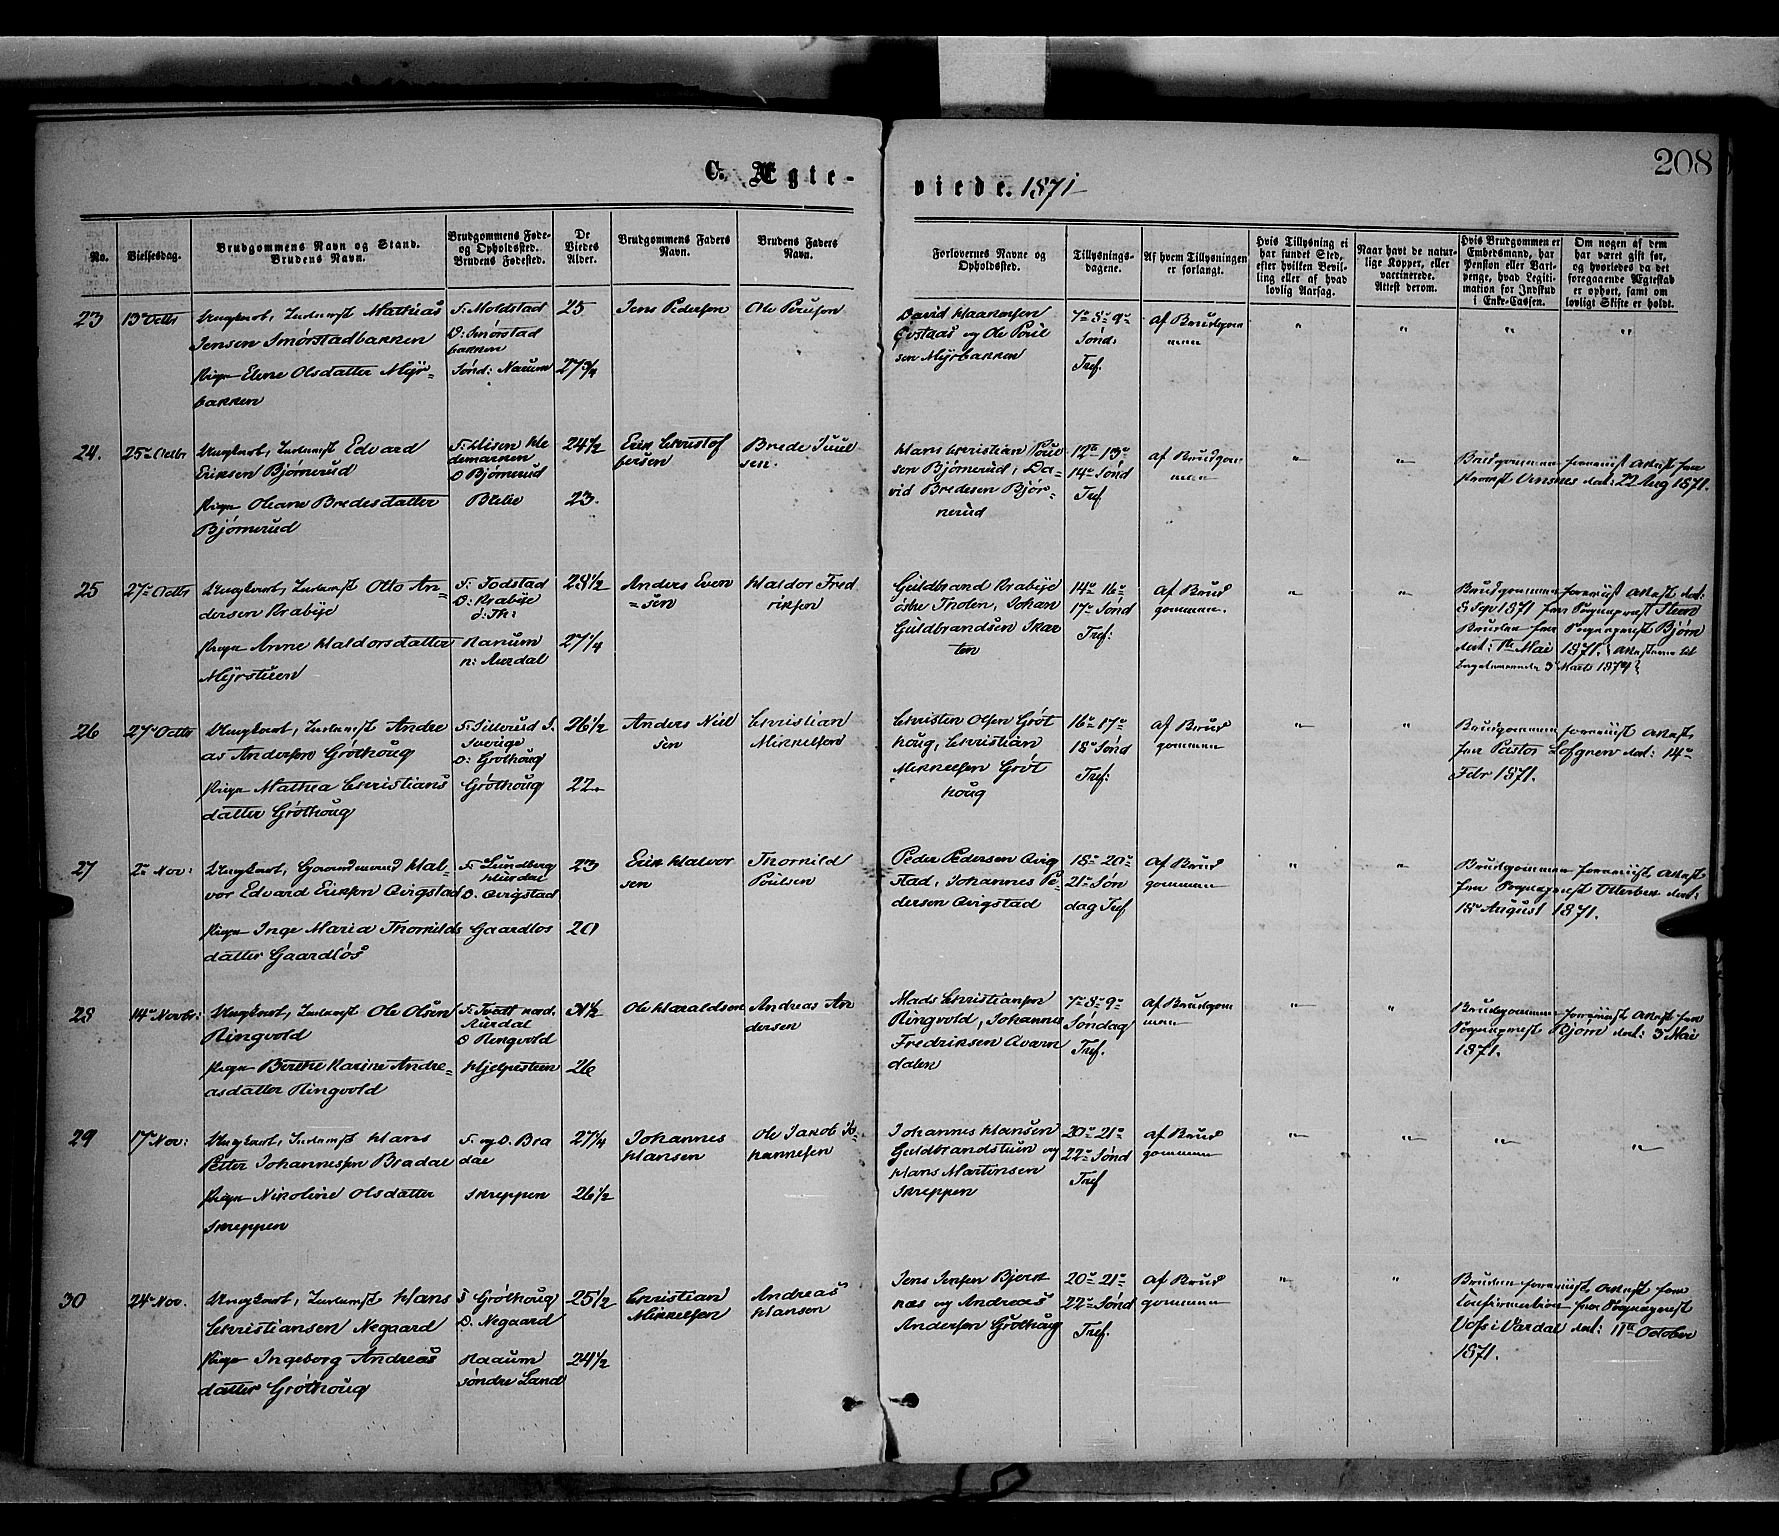 208
C. Ægte-
viede. 1871
No.
Vielsesdag.
Brudgommens Navn og Stand.
Brudens Navn.
Brudgommens Føde-
og Opholdssted.
Brudens Fødested.
De
Viedes
Alder.
Brudgommens Faders
Navn.
Brudens Faders
Navn.
Forlovernes Navne og
Opholdssted.
Tillysnings-
dagene.
Af hvem Tillysningen
er forlangt.
Hvis Tillysning ei
har fundet Sted,
efter hvilken Bevil-
ling eller af hvad
lovlig Aarsag.
Naar havt de natur-
lige Kopper, eller
vaccinerede.
Attest derom.
Hvis Brudgommen er
Embedsmand, har
Pension eller Vart-
penge, hvad Legiti-
mation for Indskud
i Enke-Cassen.
Om nogen af dem
har været gift før,
og hvorledes da det
foregaaende Ægteskab
er ophørt, samt om
lovligt Skifte er holdt.
23
13 Octbr
Ungkarl, Inderst Mathias
Jensen Smørstadbakken
Pige Elene Olsdatter Myr-
bakken
F: Moldstad
O: Smørstad
bakken
Sønd: Narum
25
27 3/4
Jens Pedersen
Ole Poulsen
David Haakensen
Evstaas og Ole Poul
sen Myrbakken
7de 8de 9de
Sønd.
Tref.
Af Brudgom
men
24.
25de Octbr
Ungkarl, Inderst Edvard
Eriksen Bjørnerud
Pige Oleane Bredesdatter
Bjørnerud
O Bjørnerud
24 1/2
23.
Erik Christof
fersen
Brede Juul
sen.
Hans Christian Poul
sen Bjørnerud, Da-
vid Bredesen Bjør-
nerud
12te 13de
14de Sønd
Tref
af Brudgom
men
Brudgommen foreviist Attest fra
dat: 22 Aug 1871.
25
27de Octbr
Ungkarl, Inderst Otto An-
dersen Krabye
Pige Anne Haldorsdatter
Myrstuen
F: Fodstad
O: Krabye
ø: Th:
Ranum
n: Aurdal
28 1/2
27 1/4
Anders Even
=sen
Haldor Fred
riksen
Guldbrand Krabye
østre Thoten, Johan
Guldbrandsen Skar
ten
14de 16de
17de Sønd
Tref:
Af Brud
gommen.
Brudgommen foreviist Attest dat:
8 Sep 1871 fra Sogneprest Steen
Bruden fra Sogneprest Bjørn
dat: 1te Mai 1871.
26
27de Octbr
Ungkarl, Inderst Andre
as Andersen Grøthoug
Pige Mathea Christians
datter Grøthoug
F: Sillerud S.
Sverige
O: Grøthoug
Grøthoug
26 1/2
22.
Anders Niel
sen
Christian
Mikkelsen
Christen Olsen Grøt
houg, Christian
Mikkelsen Grøt
houg
16de 17de
18de Sønd
Tref:
af Brud
gommen
Brudgommen foreviist Attest
fra Pastor Løfgren dat: 14de
Febr 1871.
27
2de Nov:
Ungkarl, Gaardmand Hal-
vor Edvard Eriksen Qvigstad
Pige Inge Maria Thorkilds
datter Gaardløs
F: Lundberg
Hurdal
O: Qvigstad
Gaardløs
23
20
Erik Halvor
sen
Thorkild
Poulsen
Peder Pedersen Qvig
stad, Johannes Pe-
dersen Qvigstad
18de 20de
21de Søn
dag Tref
Af Brud
gommen
Brudgommen foreviist Attest
fra Sogneprest Otterbek dat:
18de August 1871.
28
14de Novbr:
Ungkarl, Inderst Ole Olsen
Ringvold
Pige Berthe Karine Andre-
asdatter Ringvold
F: Tvedt nord.
Aurdal
O Ringvold
Hjelpestuen
31 1/2
26
Ole Haraldsen
Andreas An
dersen
Mads Christiansen
Ringvold, Johannes
Fredriksen Qvarn
dalen
7de 8de 9de
Søndag
Tref.
Af Brudgom
men
Brudgommen foreviist Attest fra
Sogneprest Bjørn dat: 3 Mai
1871.
29
17de Nov:
Ungkarl, Inderst Hans
Peter Johannesen Bradal
Pige Nikoline Olsdatter
Skreppen
F: og O. Bra
dal
Skreppen
27 1/4
26 1/2
Johannes
Hansen
Ole Jakob Jo
hannesen
Johannes Hansen
Guldbrandstuen og
Hans Martinsen
Skreppen
20de 21de
22de Sønd
Tref
af Brud
gommen
30
24de Nov.
Ungkarl, Inderst Hans
Christiansen Negaard
Pige Ingeborg Andreas
datter Grøthoug
F Grøthoug
O. Negaard
Raaum
søndre Land
25 1/2
24 1/2
Christian
Mikkelsen
Andreas
Hansen
Jens Jensen Bjerk
nes og Andreas
Andersen Grøthoug
20de 21de
22de Sønd
Tref.
Af Brud
gommen
Bruden foreviist Attest fra
Confirmation fra Sogneprest
Voss i Vardal dat: 11te October
1871.